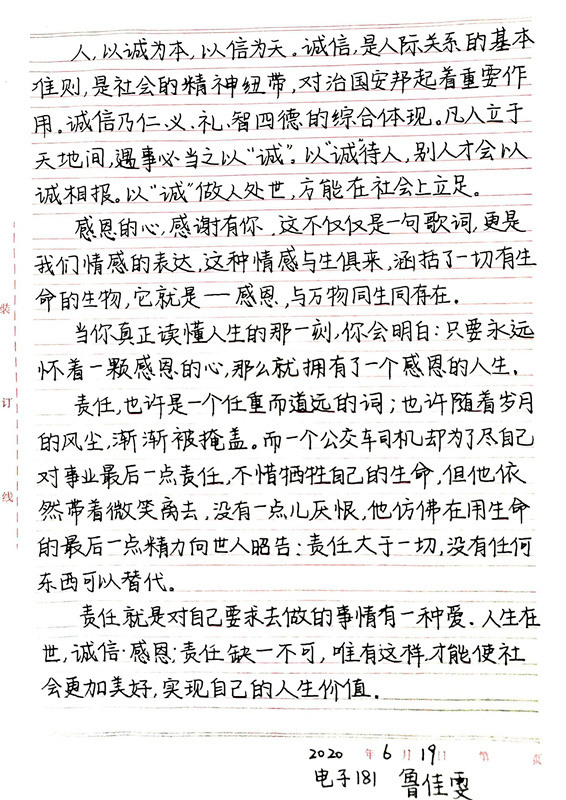 人,以诚为本,以信为天。诚信,是人际关系的基本
准则,是社会的精神纽带,对治国安邦起着重要作
用。诚信乃仁、义、礼、智四德的综合体现。凡人立于
天地间,遇事必当之以“诚”。以“诚”待人,别人才会以
诚相报。以“诚”做人处世,方能在社会上立足。
感恩的心,感谢有你,这不仅仅是一句歌词,更是
我们情感的表达,这种情感与生俱来,涵括了一切有生
命的生物,它就是——感恩,与万物同生同存在.
当你真正读懂人生的那一刻,你会明白:只要永远
怀着一颗感恩的心,那么就拥有了一个感恩的人生.
责任,也许是一个任重而道远的词;也许随着岁月
的风尘,渐渐被掩盖。而一个公交车司机却为了尽自己
对事业最后一点责任,不惜牺牲自己的生命,但他依
然带着微笑离去,没有一点儿厌恨,他仿佛在用生命
的最后一点精力向世人昭告:责任大于一切,没有任何
东西可以替代。
责任就是对自己要求去做的事情有一种爱.人生在
世,诚信·感恩·责任缺一不可,唯有这样,才能使社
会更加美好,实现自己的人生价值.
装
订
线
2020年6月19日 第 页
电子181 鲁佳雯